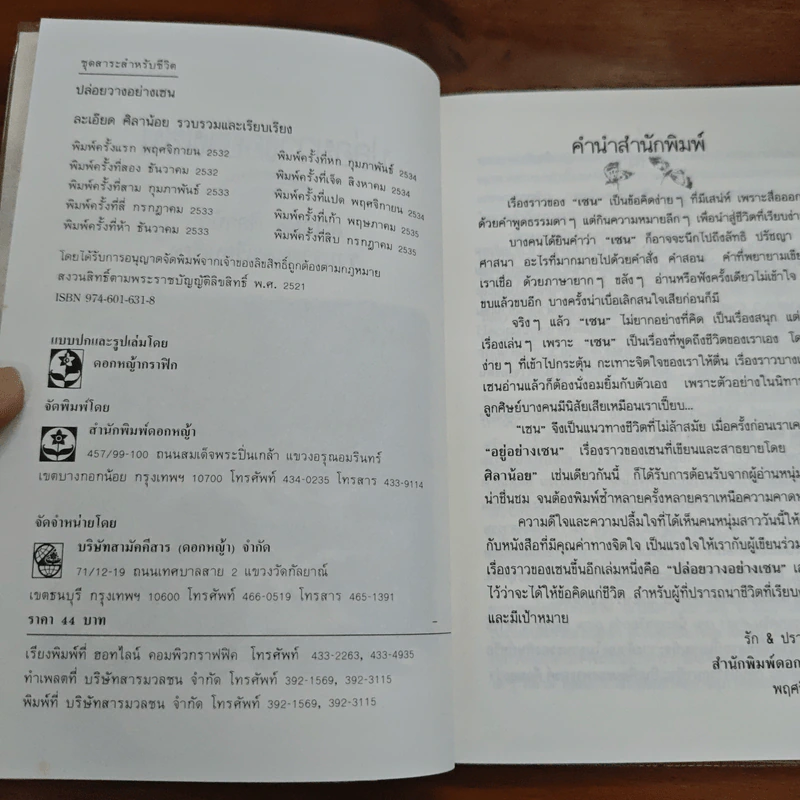 ชุดสาระสำหรับชีวิต
ปล่อยวางอย่างเซน
ละเอียด ศิลาน้อย รวบรวมและเรียบเรียง
พิมพ์ครั้งแรก พฤศจิกายน 2532
พิมพ์ครั้งที่สอง ธันวาคม 2532
พิมพ์ครั้งที่สาม กุมภาพันธ์ 2533
พิมพ์ครั้งที่สี่ กรกฎาคม 2533
พิมพ์ครั้งที่ห้า ธันวาคม 2533
พิมพ์ครั้งที่หก กุมภาพันธ์ 2534
พิมพ์ครั้งที่เจ็ด สิงหาคม 2534
พิมพ์ครั้งที่แปด พฤศจิกายน 2534
พิมพ์ครั้งที่เก้า พฤษภาคม 2535
พิมพ์ครั้งที่สิบ กรกฎาคม 2535
โดยได้รับการอนุญาตจัดพิมพ์จากเจ้าของลิขสิทธิ์ถูกต้องตามกฎหมาย
สงวนสิทธิ์ตามพระราชบัญญัติลิขสิทธิ์ พ.ศ. 2521
ISBN 974-601-631-8
แบบปกและรูปเล่มโดย
ดอกหญ้ากราฟิก
จัดพิมพ์โดย
สำนักพิมพ์ดอกหญ้า
457/99-100 ถนนสมเด็จพระปิ่นเกล้า แขวงอรุณอมรินทร์
เขตบางกอกน้อย กรุงเทพฯ 10700 โทรศัพท์ 434-0235 โทรสาร 433-9114
จัดจำหน่ายโดย
บริษัทสามัคคีสาร (ดอกหญ้า) จำกัด
71/12-19 ถนนเทศบาลสาย 2 แขวงวัดกัลยาณ์
เขตธนบุรี กรุงเทพฯ 10600 โทรศัพท์ 466-0519 โทรสาร 465-1391
ราคา 44 บาท
เรียงพิมพ์ที่ ฮอทไลน์ คอมพิวกราฟฟิค โทรศัพท์ 433-2263, 433-4935
ทำเพลตที่ บริษัทสารมวลชน จำกัด โทรศัพท์ 392-1569, 392-3115
พิมพ์ที่ บริษัทสารมวลชน จำกัด โทรศัพท์ 392-1569, 392-3115
คำนำสำนักพิมพ์
เรื่องราวของ "เซน" เป็นข้อคิดง่ายๆ ที่มีเสน่ห์ เพราะสื่อออก
ด้วยคำพูดธรรมดาๆ แต่กินความหมายลึกๆ เพื่อนำสู่ชีวิตที่เรียบง่าย
บางคนได้ยินคำว่า "เซน" ก็อาจจะนึกไปถึงลัทธิ ปรัชญา
ศาสนา อะไรที่มากมายไปด้วยคำสั่ง คำสอน คำที่พยายามเขียน
เราเชื่อ ด้วยภาษายากๆ ขลังๆ อ่านหรือฟังครั้งเดียวไม่เข้าใจ
ขบแล้วขบอีก บางครั้งน่าเบื่อเลิกสนใจเสียก่อนก็มี
จริงๆ แล้ว "เซน" ไม่ยากอย่างที่คิด เป็นเรื่องสนุก แต่
เรื่องเล่นๆ เพราะ "เซน" เป็นเรื่องที่พูดถึงชีวิตของเราเอง
ง่ายๆ ที่เข้าไปกระตุ้น กะเทาะจิตใจของเราให้ตื่น เรื่องราวบาง
เซนอ่านแล้วก็ต้องนั่งอมยิ้มกับตัวเอง เพราะตัวอย่างในนิทาน
ลูกศิษย์บางคนมีนิสัยเสียเหมือนเราเปี๊ยบ...
"เซน" จึงเป็นแนวทางชีวิตที่ไม่ล้าสมัย เมื่อครั้งก่อนเรา
"อยู่อย่างเซน" เรื่องราวของเซนที่เขียนและสาธยายโดย
ศิลาน้อย" เช่นเดียวกันนี้ ก็ได้รับการต้อนรับจากผู้อ่านหนุ่ม
น่าชื่นชม จนต้องพิมพ์ซ้ำหลายครั้งหลายคราเหนือความคาด
ความดีใจและความปลื้มใจที่ได้เห็นคนหนุ่มสาววันนี้ให้
กับหนังสือที่มีคุณค่าทางจิตใจ เป็นแรงใจให้เรากับผู้เขียนร่วม
เรื่องราวของเซนขึ้นอีกเล่มหนึ่งคือ "ปล่อยวางอย่างเซน"
ไว้ว่าจะได้ให้ข้อคิดแก่ชีวิต สำหรับผู้ที่ปรารถนาชีวิตที่เรียบ
และมีเป้าหมาย
รัก & ปรา
สำนักพิมพ์ดอก
พฤศจิ